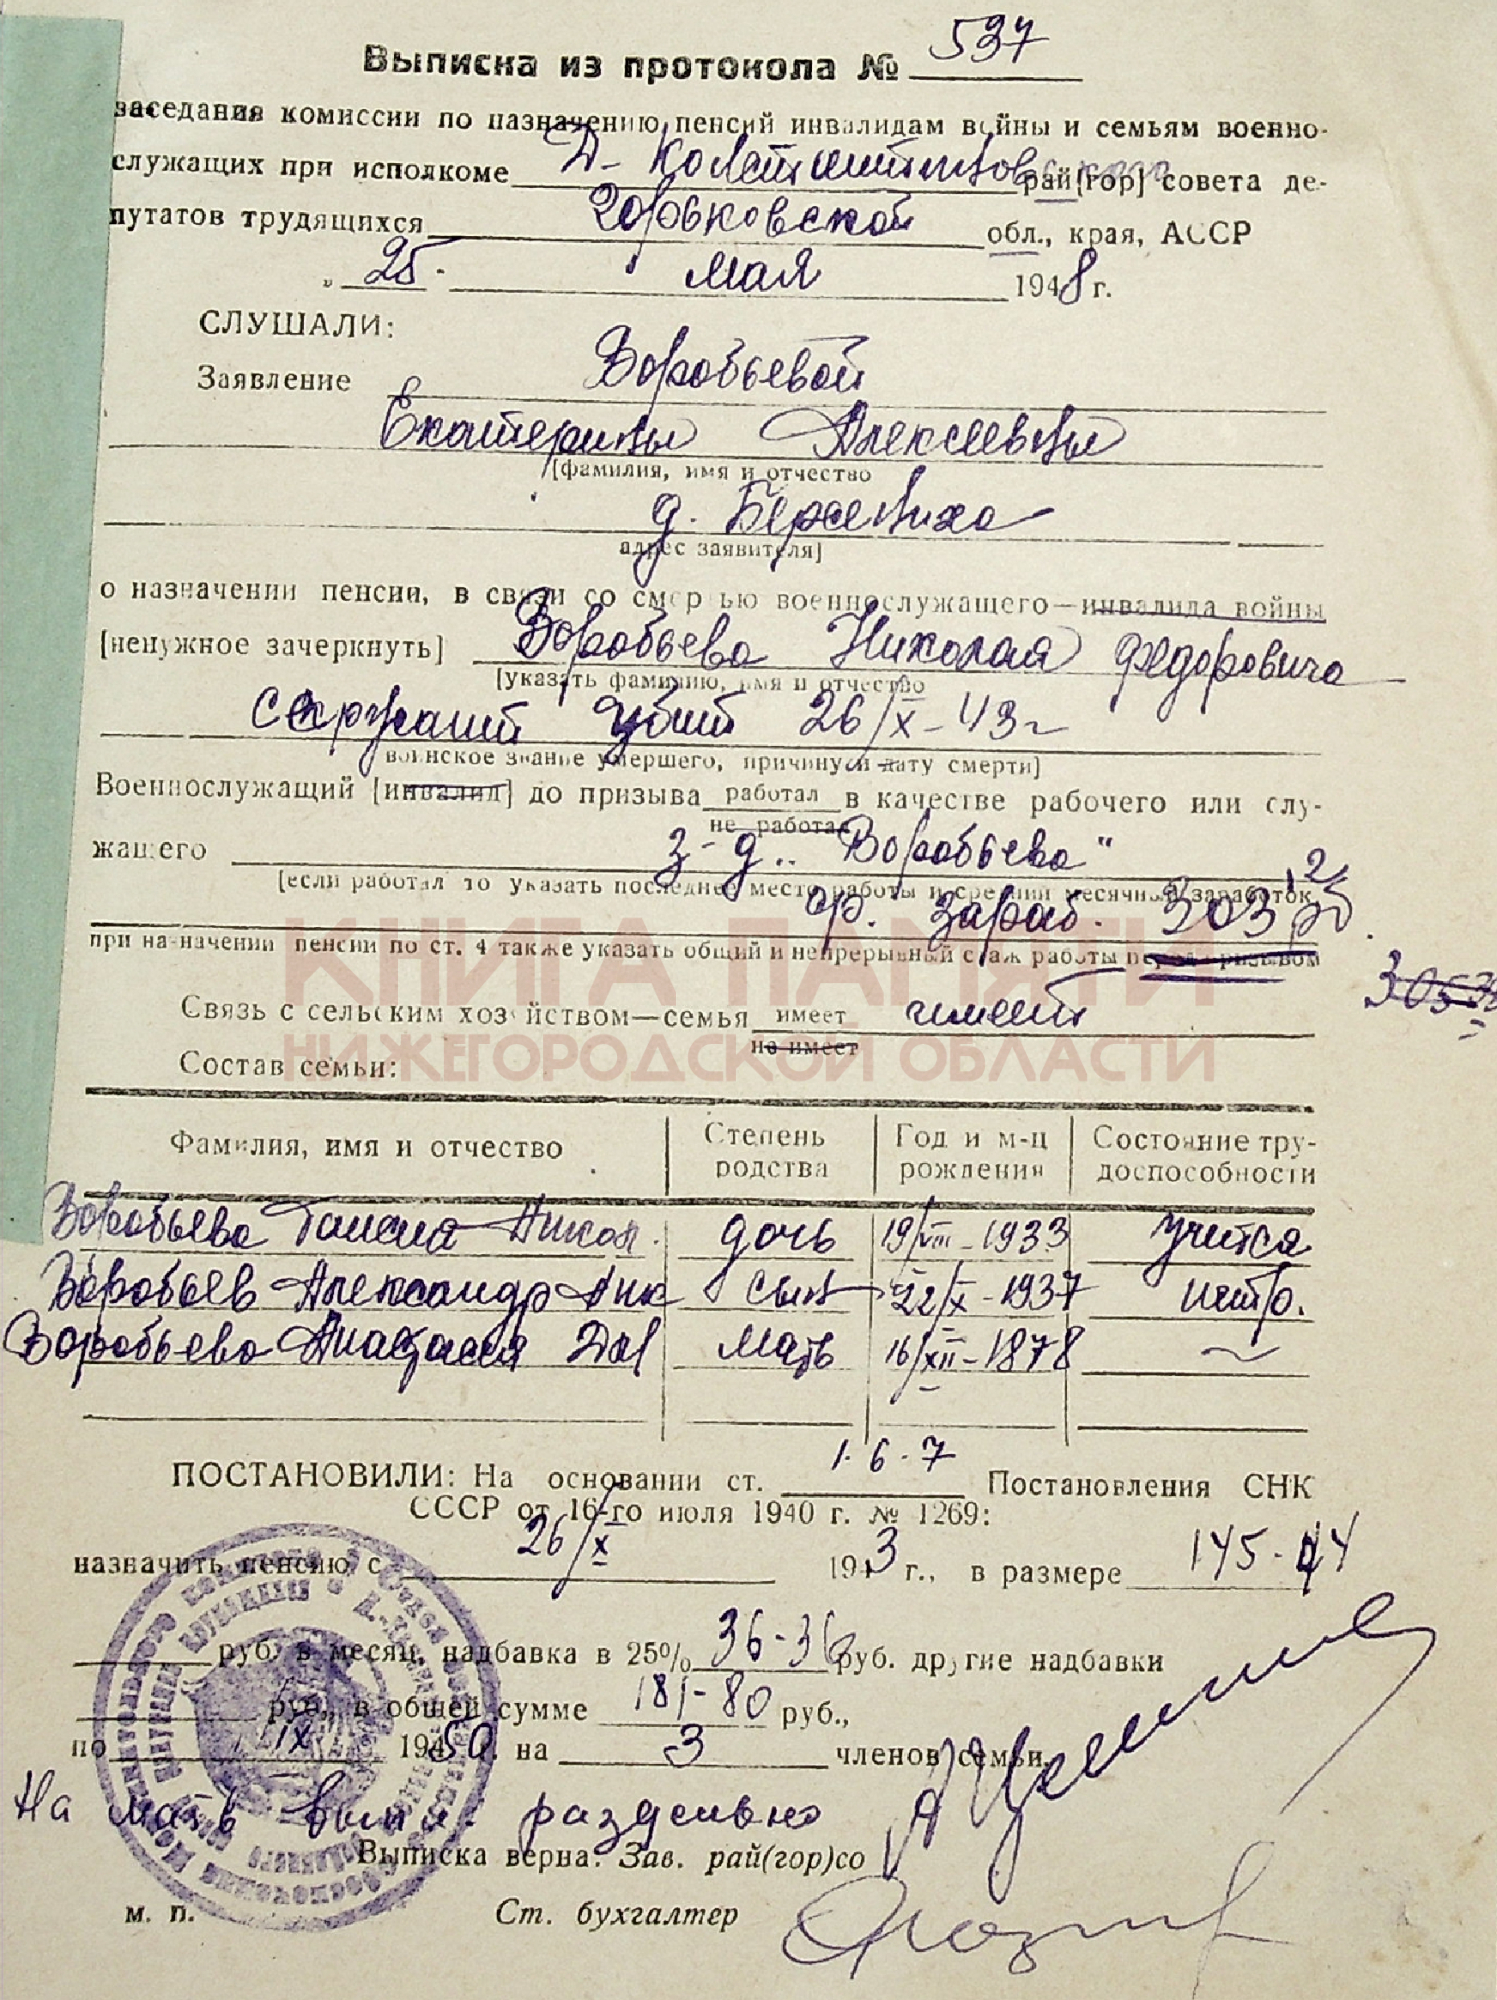 Выписка из протокола № 537
заседания комиссии по назначению пенсий инвалидам войны и семьям военно-
служащих при исполкоме Д-Константиновского рай[гор] совета де-
путатов трудящихся Горьковской обл., края, АССР
„ 25. мая 1948 г.
СЛУШАЛИ:
Заявление Воробьевой
Екатерины Алексеевны
[фамилия, имя и отчество
д. Берсениха
адрес заявителя]
о назначении пенсии, в связи со смертью военнослужащего—инвалида войны
[ненужное зачеркнуть] Воробьева Николая Федоровича
[указать фамилию, имя и отчество
сержант убит 26/IX-43г
воинское звание умершего, причину и дату смерти]
Военнослужащий [инвалид] до призыва работал в качестве рабочего или слу-
не работал
жащего з-д „Воробьева"
[если работал то указать последнее место работы и средний месячный заработок
ср. зараб. 303
при назначении пенсии по ст. 4 также указать общий и непрерывный стаж работы перед призывом
Связь с сельским хозяйством—семья имеет имеет
не имеет
Состав семьи:
Фамилия, имя и отчество Степень родства Год и м-ц рождения Состояние тру-доспособности
Воробьева Таисия Никол. дочь 19/VIII-1933 учится
Воробьев Александр Ник сын 22/X-1937 нетр.
Воробьева Анастасия мать 16/XII-1878
ПОСТАНОВИЛИ: На основании ст. 1.6.7 Постановления СНК
СССР от 16-го июля 1940 г. № 1269:
назначить пенсию с 26/X 1943 г., в размере 145-44
руб. в месяц, надбавка в 25% 36-36 руб. другие надбавки
руб., в общей сумме 181-80 руб.,
по IX 1950. на 3 членов семьи
На мать вып. раздельно
Выписка верна: Зав. рай(гор)со
м. п. Ст. бухгалтер
КНИГА ПАМЯТИ
НИЖЕГОРОДСКОЙ ОБЛАСТИ